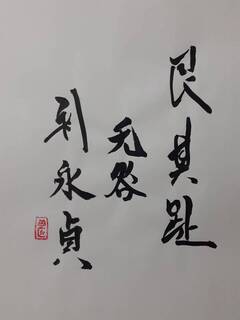 艮其趾
无咎
利永貞